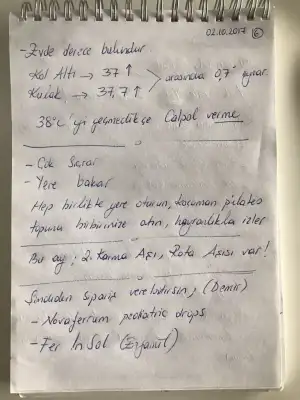 02.10.2017 6
- Evde derece bulundur
Kol Altı → 37 ↑
Kulak → 37,7 ↑ > arasında 0,7° oynar.
38°C yi geçmedikçe Calpol verme
- Çok Sıçrar
- Yere bakar
Hep birlikte yere oturun, kocaman pilates
topunu birbirinize atın, hayranlıkla izler
Bu ay; 2. Karma Aşı, Rota Aşısı var!
Şimdiden sipariş verebilirsin; (Demir)
- Novaferrum pediatric drops
- Fer In Sol